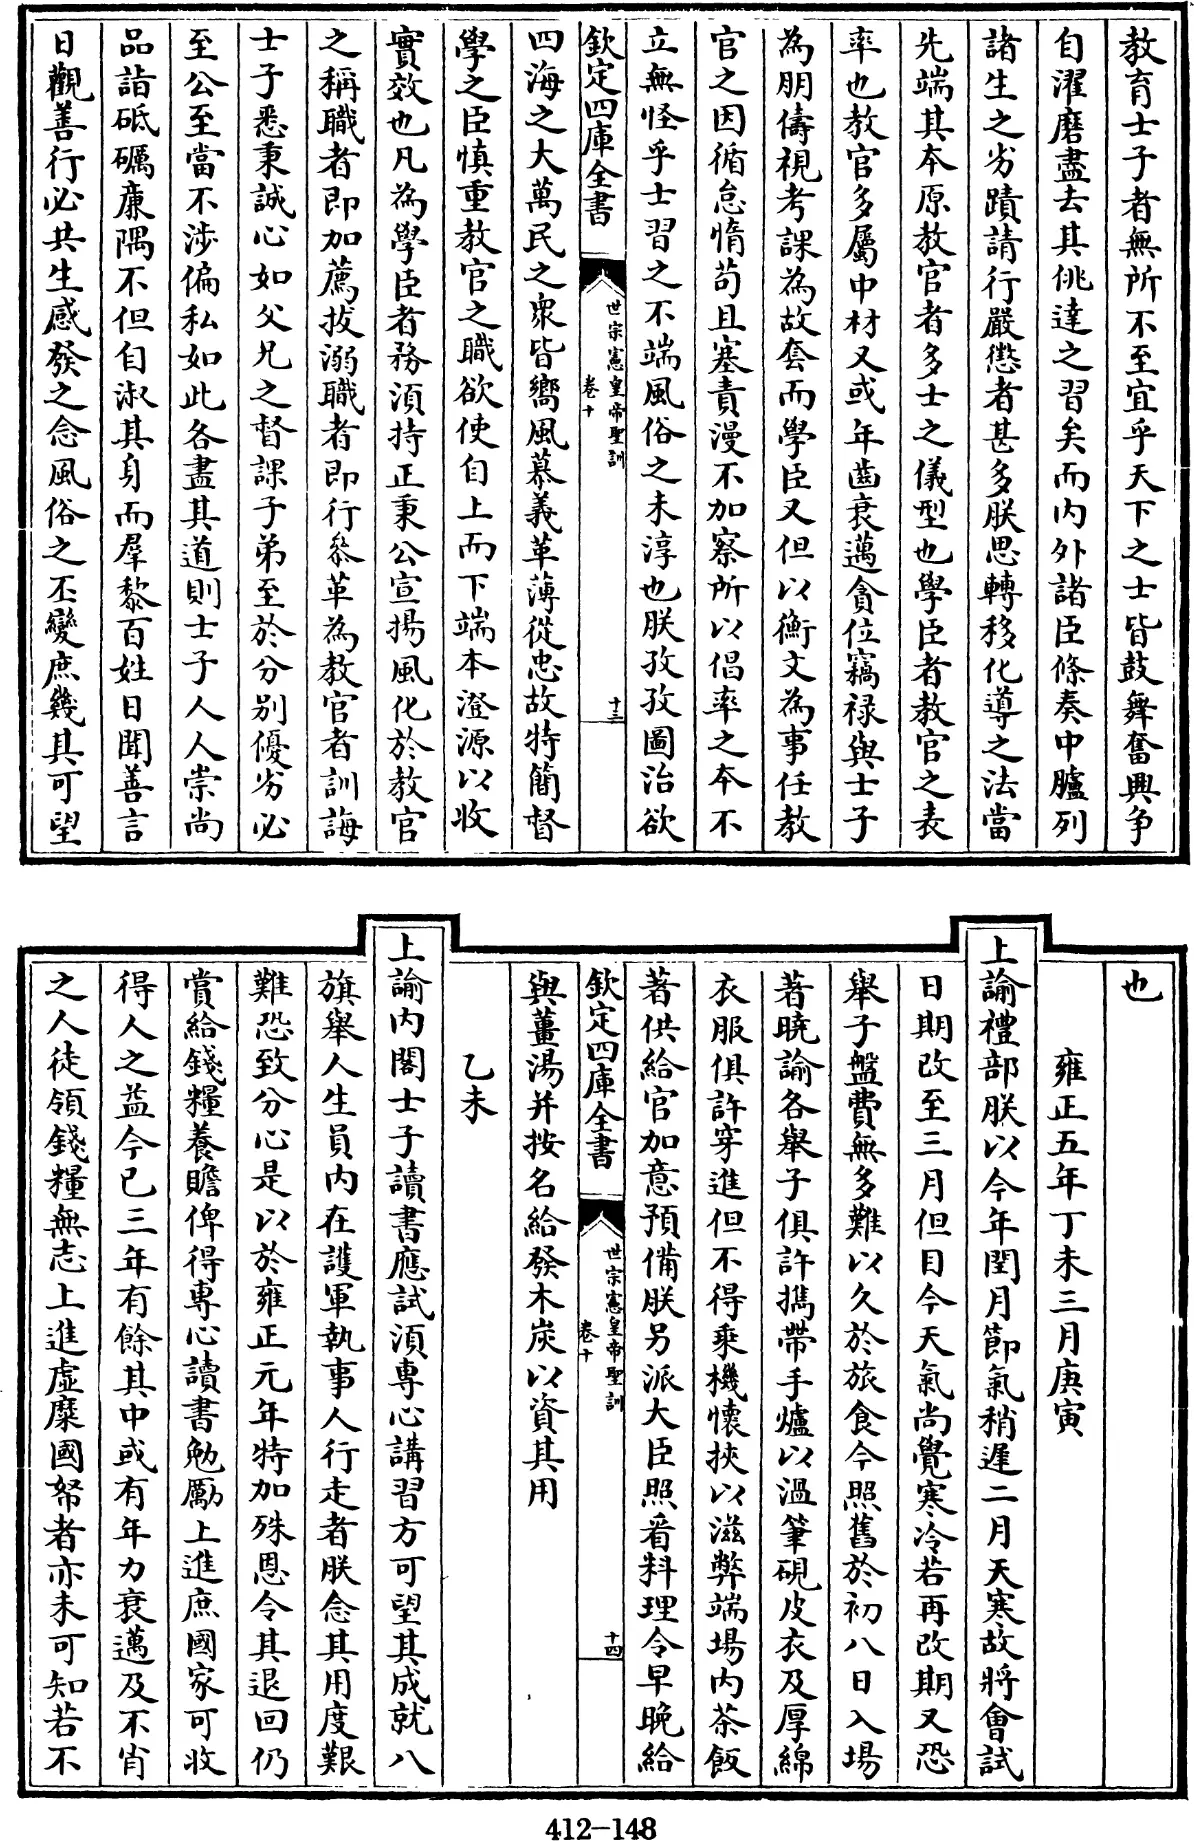 教育士子者無所不至宜乎天下之士皆鼓舞奮興争
自濯磨盡去其佻達之習矣而内外諸臣條奏中臚列
諸生之劣蹟請行嚴懲者甚多朕思轉移化導之法當
先端其本原教官者多士之儀型也學臣者教官之表
率也教官多屬中材又或年齒衰邁貪位竊禄與士子
為朋儔視考課為故套而學臣又但以衡文為事任教
官之因循怠惰苟且塞責漫不加察所以倡率之本不
立無怪乎士習之不端風俗之未淳也朕孜孜圖治欲
欽定四庫全書
世宗憲皇帝聖訓
卷十
十三
四海之大萬民之衆皆嚮風慕義革薄從忠故特簡督
學之臣慎重教官之職欲使自上而下端本澄源以收
實效也凡為學臣者務須持正秉公宣揚風化於教官
之稱職者即加薦拔溺職者即行叅革為教官者訓誨
士子悉秉誠心如父兄之督課子弟至於分别優劣必
至公至當不涉偏私如此各盡其道則士子人人崇尚
品詣砥礪廉隅不但自淑其身而羣黎百姓日聞善言
日觀善行必共生感發之念風俗之丕變庶幾其可望
也
雍正五年丁未三月庚寅
上諭禮部朕以今年閏月節氣稍遲二月天寒故將會試
日期改至三月但目今天氣尚覺寒冷若再改期又恐
舉子盤費無多難以久於旅食今照舊於初八日入場
著曉諭各舉子俱許攜帶手爐以温筆硯皮衣及厚綿
衣服俱許穿進但不得乘機懷挾以滋弊端場内茶飯
著供給官加意預備朕另派大臣照看料理令早晚給
欽定四庫全書
世宗憲皇帝聖訓
卷十
十四
與薑湯并按名給發木炭以資其用
乙未
上諭内閣士子讀書應試須專心講習方可望其成就八
旗舉人生員内在護軍執事人行走者朕念其用度艱
難恐致分心是以於雍正元年特加殊恩令其退回仍
賞給錢糧養贍俾得專心讀書勉勵上進庶國家可收
得人之益今已三年有餘其中或有年力衰邁及不肖
之人徒領錢糧無志上進虛糜國帑者亦未可知若不
412-148